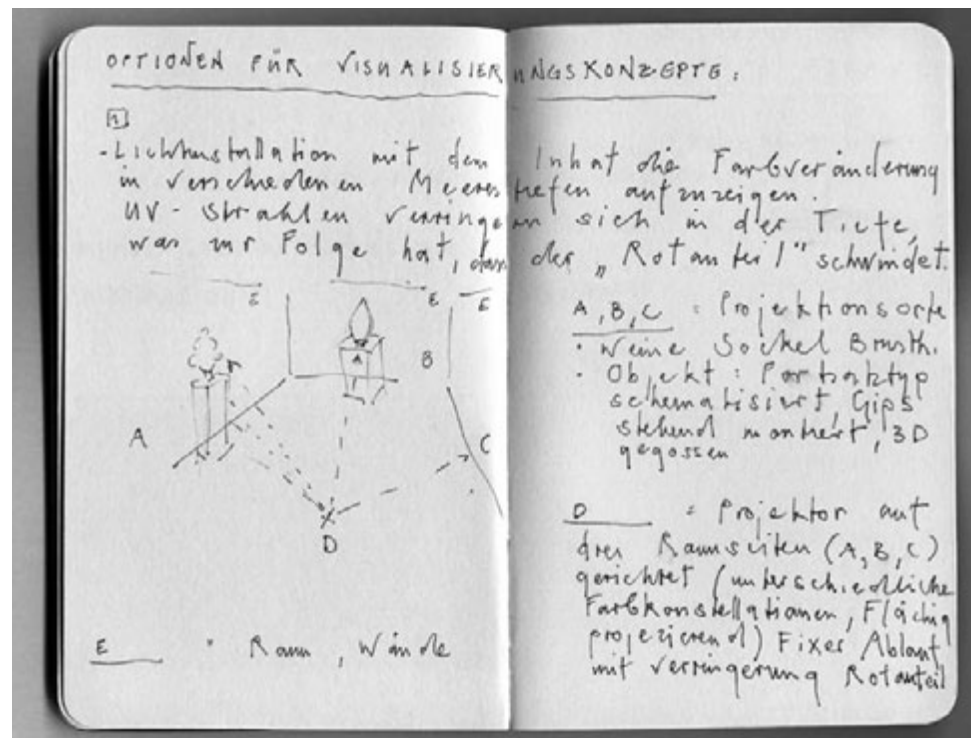 OPTIONEN FÜR VISUALISIERUNGSKONZEPTE:
1
- Lichtinstallation mit dem Inhat die Farbveränderung
in verschiedenen Meerestiefen aufzuzeigen.
UV-Strahlen verringern sich in der Tiefe,
was zur Folge hat, dass der „Rotanteil" schwindet.
E E E
A B C
A
D
E : Raum, Wände
A, B, C : Projektionsorte
· Sockel Brusth.
· Objekt : 
schematisiert, Gips
stehend montiert, 3D
gegossen
D = Projektor auf
drei Raumseiten (A, B, C)
gerichtet (unterschiedliche
Farbkonstellationen, Flächig
projezierend) Fixer Ablauf
mit Verringerung Rotanteil